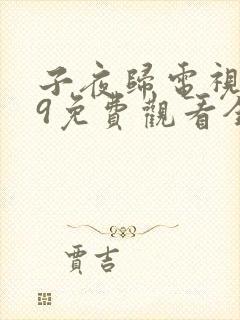 子夜歸電視
9免費觀看全
賈吉